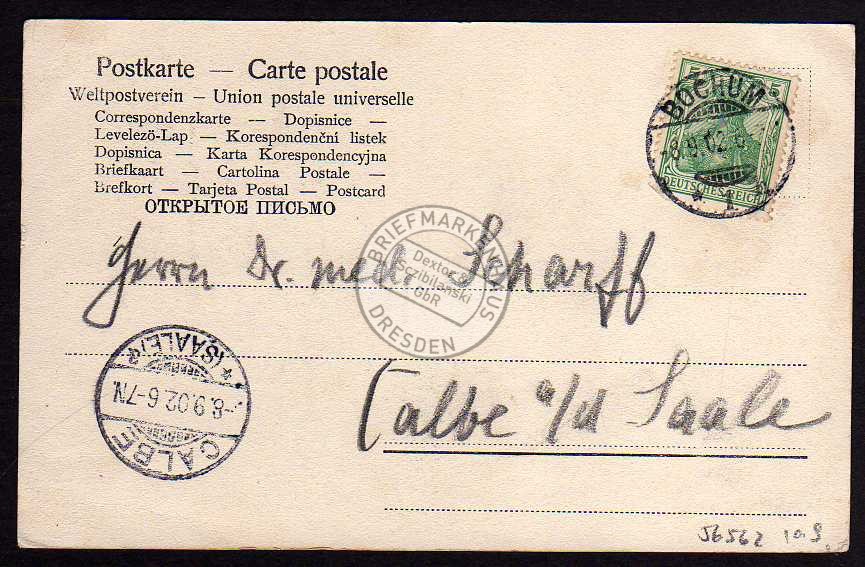 Postkarte — Carte postale
Weltpostverein – Union postale universelle
Correspondenzkarte — Dopisnice —
Levelezö-Lap — Korespondenční listek
Dopisnica — Karta Korespondencyjna
Briefkaart — Cartolina Postale —
Brefkort — Tarjeta Postal — Postcard
ОТКРЫТОЕ ПИСЬМО
5 5
DEUTSCHES REICH
BOCHUM
8.9.02.6
1.
Herrn Dr. med. Scharff
BRIEFMARKENHAUS
Dextor &
Sczibilanski
GbR
DRESDEN
(SAALE)
8.9.02.6-7N.
CALBE
Calbe a/d Saale
56562